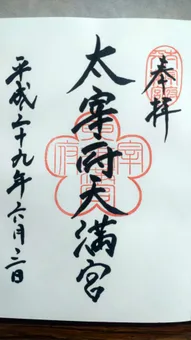 奉拝
太宰府天満宮
平成二十九年六月二日